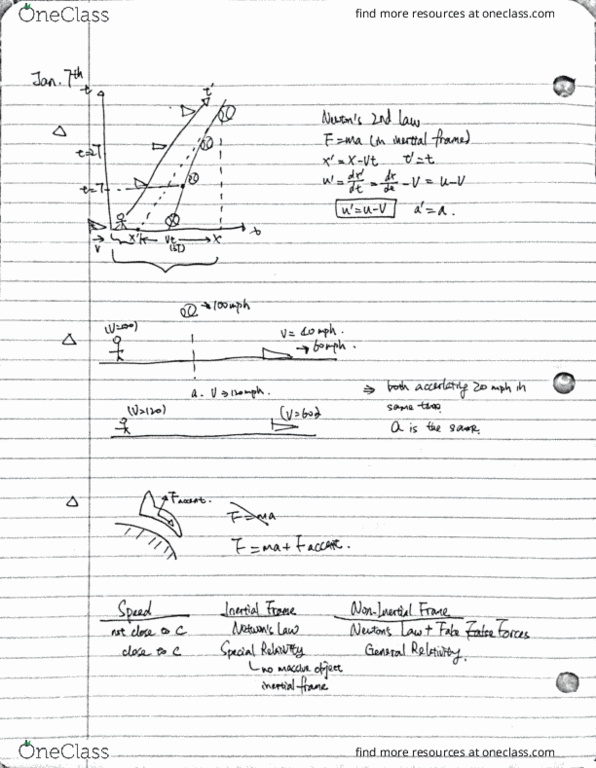 OneClass
find more resources at oneclass.com
Jan. 7th
t
t'
t=2T
t=T
V
x'
Vt
x
Newton's 2nd Law
F=ma (in inertial frame)
x' = x-Vt t'=t
u' = dx'/dt = dx/dt - V = u-V
u'=u-V a'=a.
→100mph
(V=100)
V= 40mph.
→60mph.
a. V→120mph.
(V=120)
(V=60)
⇒ both accerlating 20 mph in
same time.
a is the same.
F=ma
F=ma+
Speed Inertial Frame Non-Inertial Frame
not close to C Netwon's Law Newton's Law + Fake False Forces
close to C Special Relativity General Relativity.
no massive object
inertial frame
OneClass
find more resources at oneclass.com